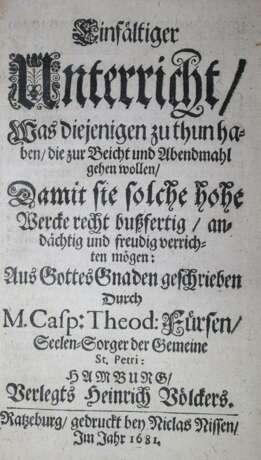 Einfältiger
Unterricht/
Was diejenigen zu thun ha-
ben/ die zur Beicht und Abendmahl
gehen wollen/
Damit sie solche hohe
Wercke recht bußfertig/ an-
dächtig und freudig verrich-
ten mögen:
Aus Gottes Gnaden geschrieben
Durch
M. Casp: Theod: Fürsen/
Seelen-Sorger der Gemeine
St. Petri:
HAMBURG/
Verlegts Heinrich Völckers.
Ratzeburg/ gedruckt bey Niclas Nissen/
Im Jahr 1681.